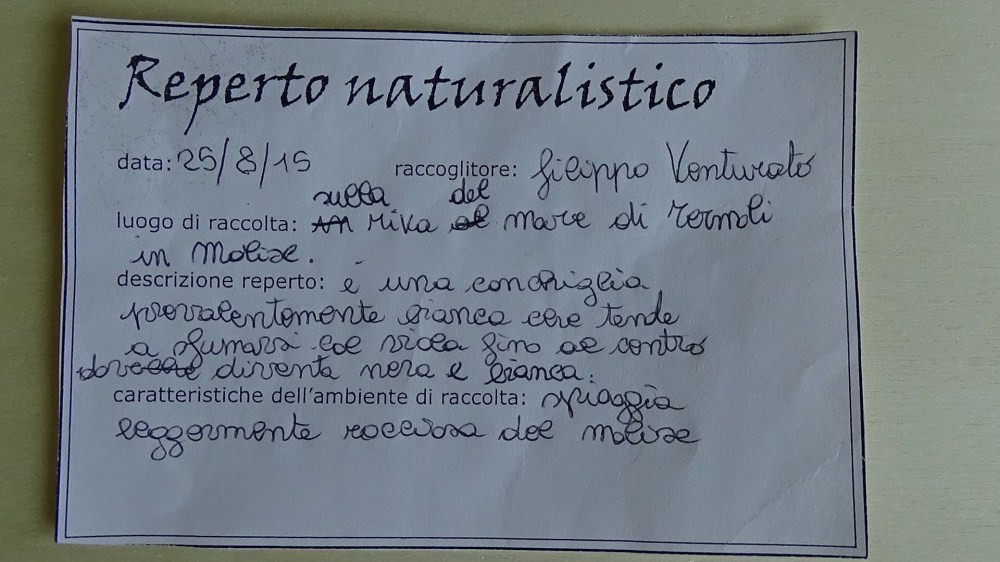 Reperto naturalistico
data: 25/8/15 raccoglitore: Filippo Venturato
sulla del
luogo di raccolta: riva mare di Termoli
in Molise.
descrizione reperto: è una conchiglia
prevalentemente bianca che tende
a sfumarsi col viola fino al centro
dove diventa nera e bianca.
caratteristiche dell'ambiente di raccolta: spiaggia
leggermente rocciosa del molise